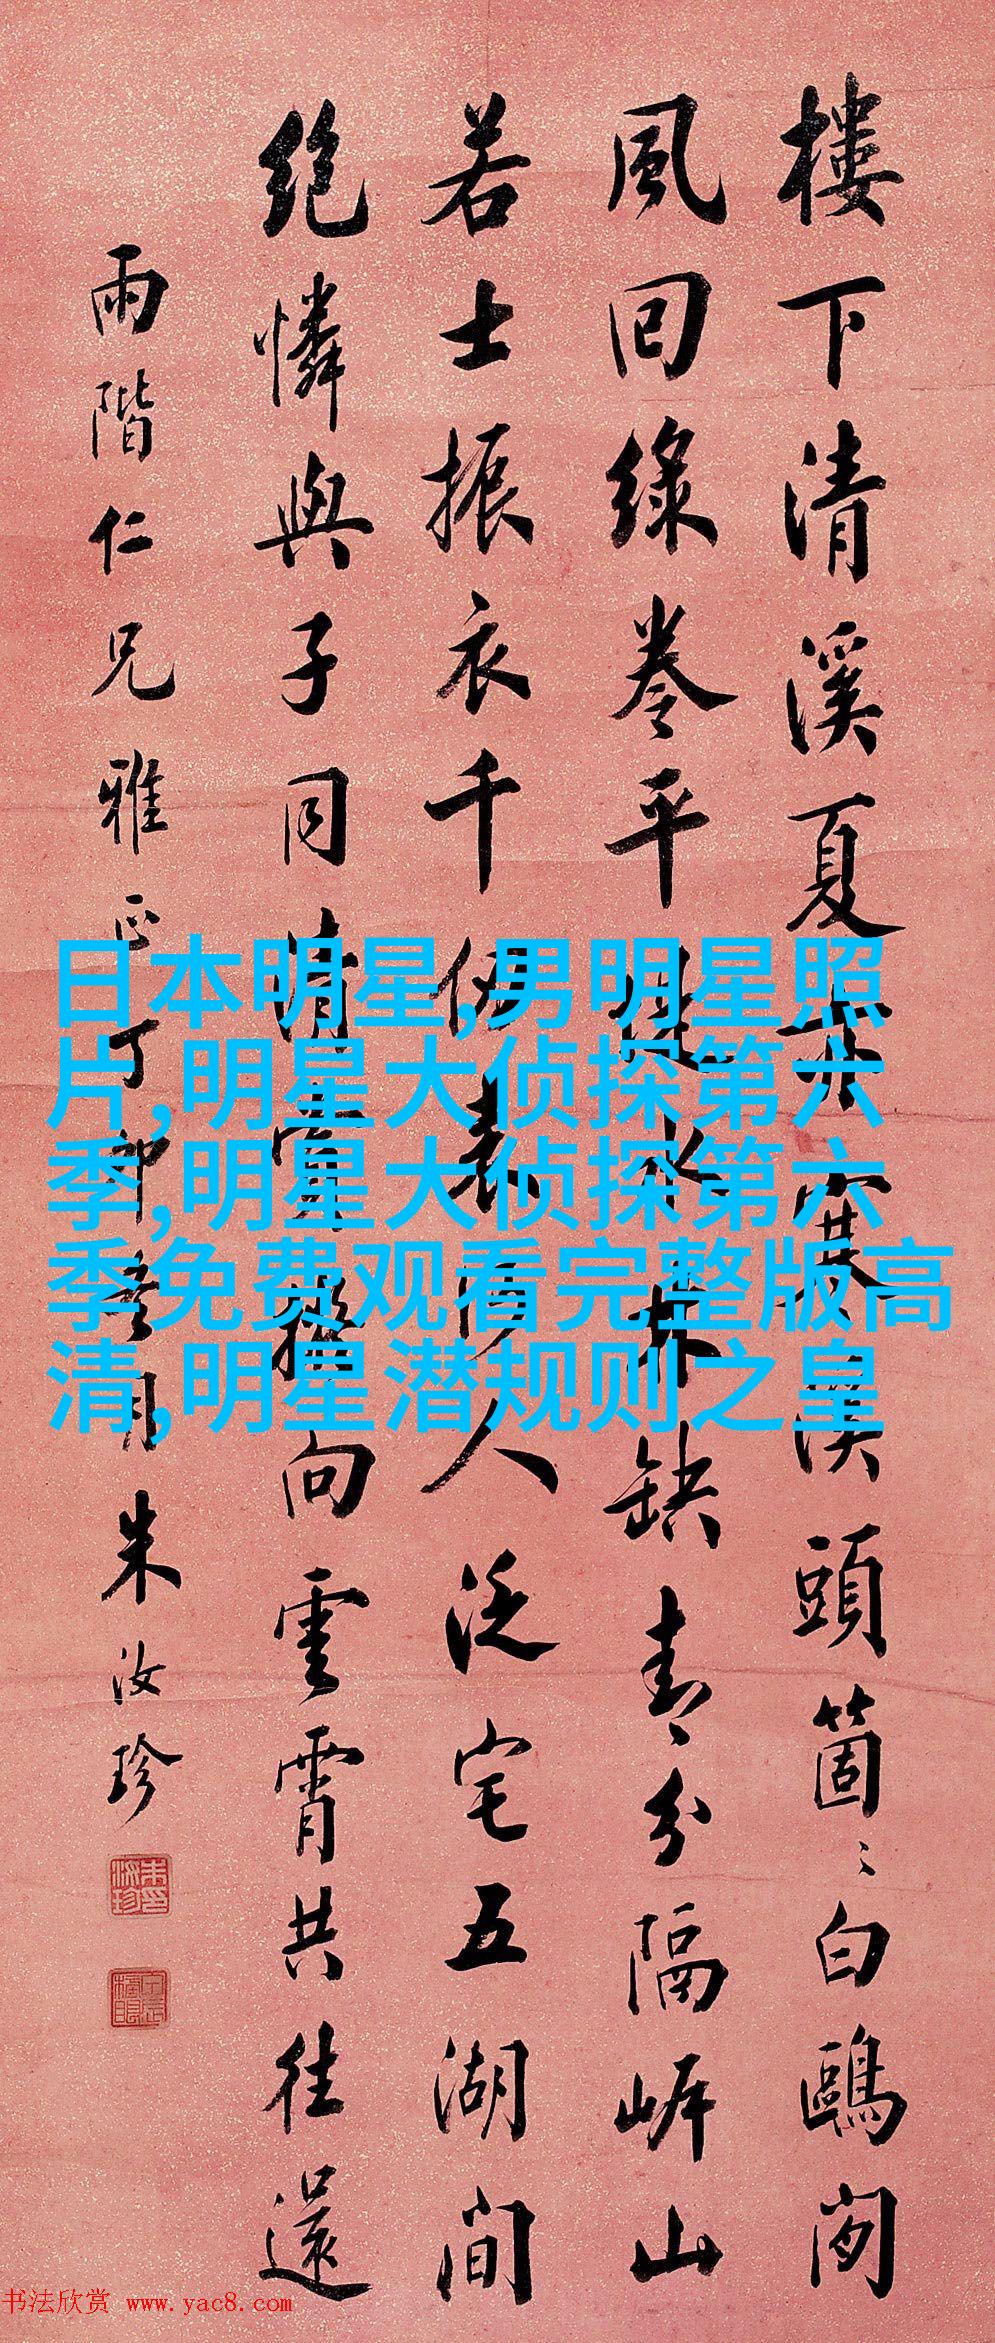 樓下清溪夏亦寒溪頭箇〻白鷗閒
風回綠卷平堤水林缺青分隔岸山
若士振衣千仞表何人泛宅五湖間
絕憐與子同清賞擬向雲霄共往還
雨階仁兄雅正丁卯月朱汝珍
日本明星,男明星照
片,明星大侦探第六
季,明星大侦探第六
季免费观看完整版高
清,明星潜规则之皇
书法欣赏 www.yac8.com